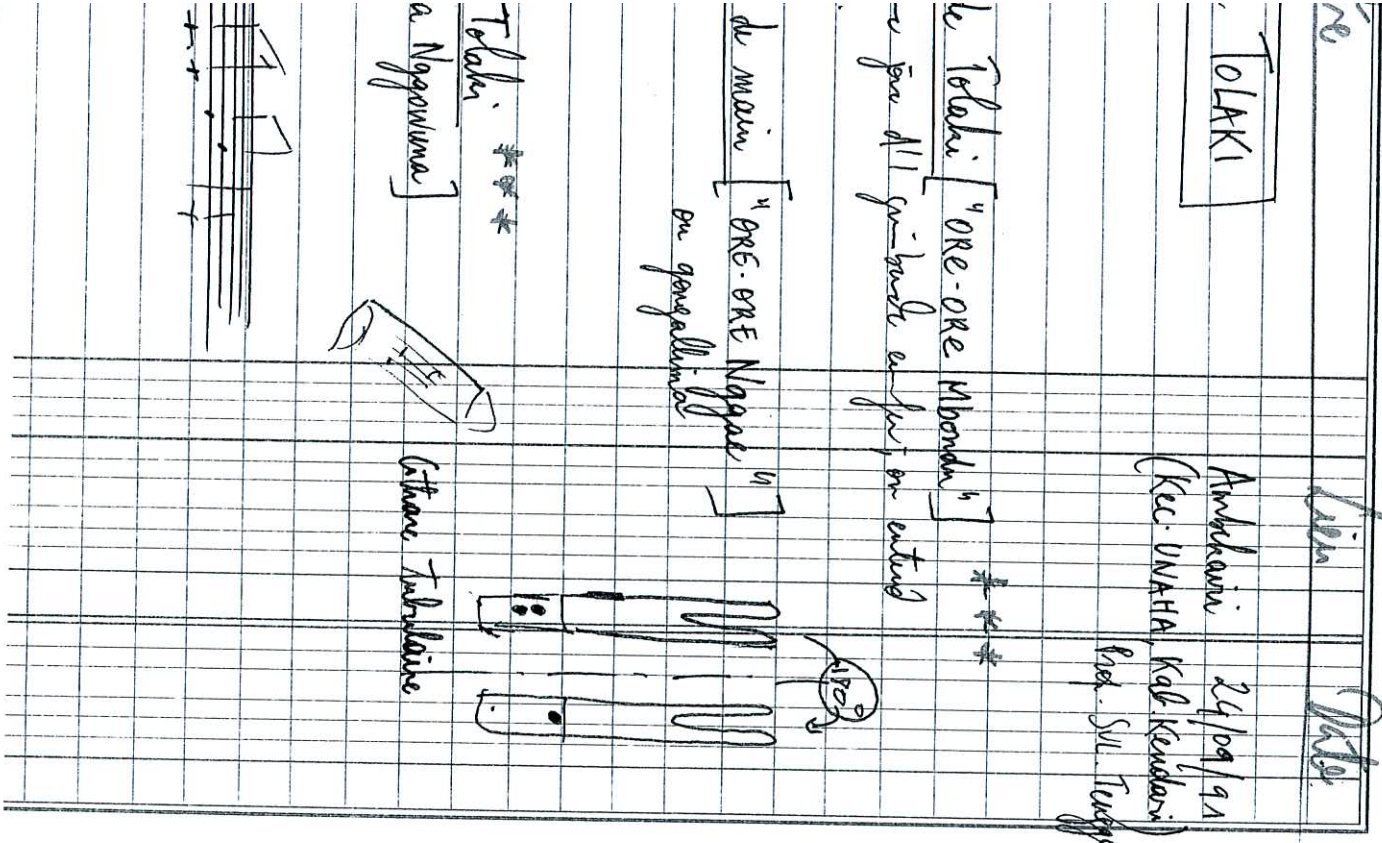 Lieu Date
TOLAKI
Ambekairi 24/09/91
(Kec. UNAHA, Kab Kendari)
Prop. Sul. Tengga
Tolaki ["ORE-ORE Mbondu"] ***
on entend
de main ["ORE-ORE Nggae"]
ou
180°
Tolaki ***
a Nggowuna]
Cithare Tubulaire